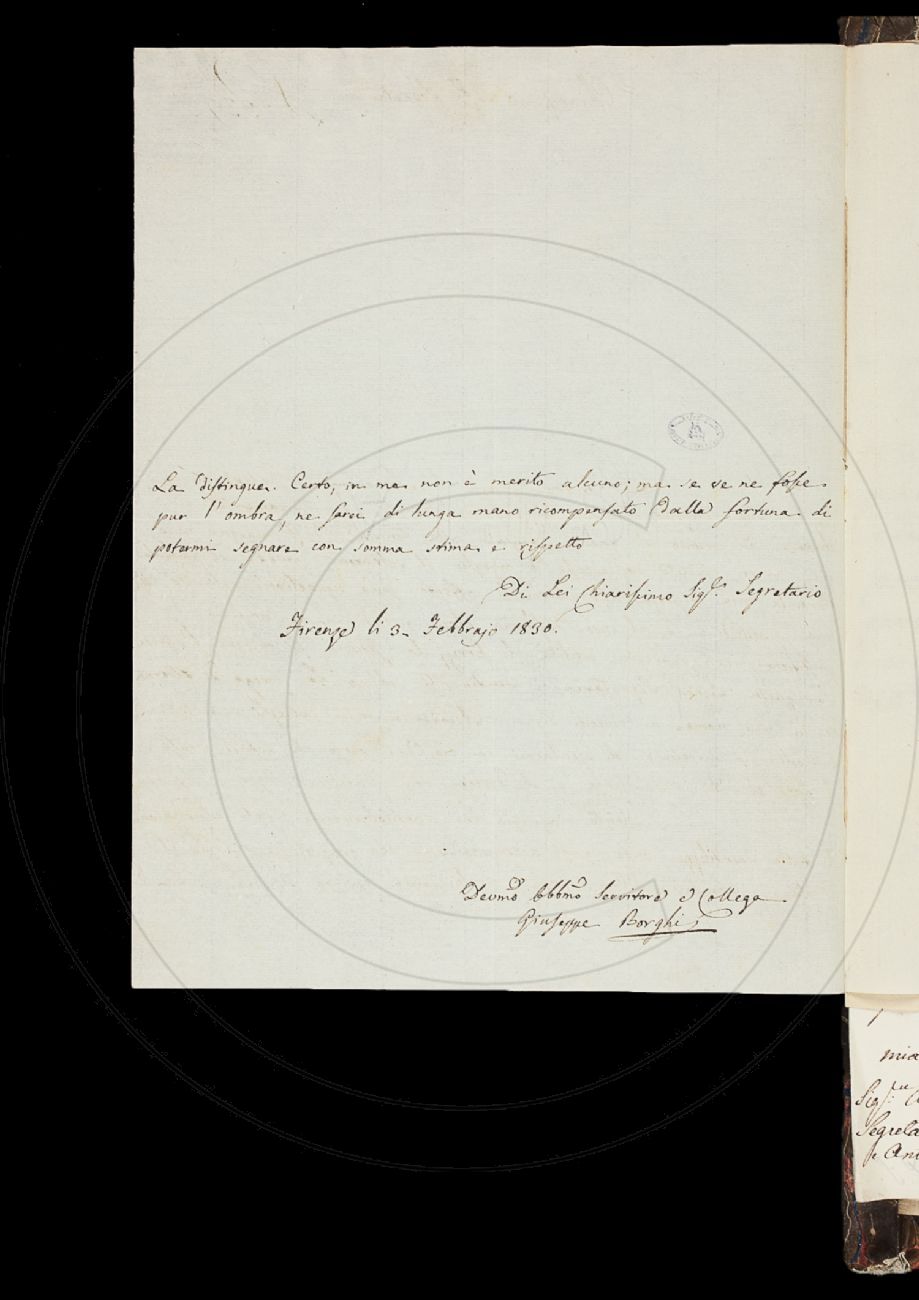 La distingue. Certo, in me non è merito alcuno; ma se ve ne fosse
pur l'ombra, ne sarei di lunga mano ricompensato dalla fortuna di
potermi segnare con somma stima e rispetto
Di Lei Chiarissimo Sig.r Segretario
Firenze li 3 Febbrajo 1830.
Devmõ Obbmõ Servitore e Collega
Giuseppe Borghi
mia